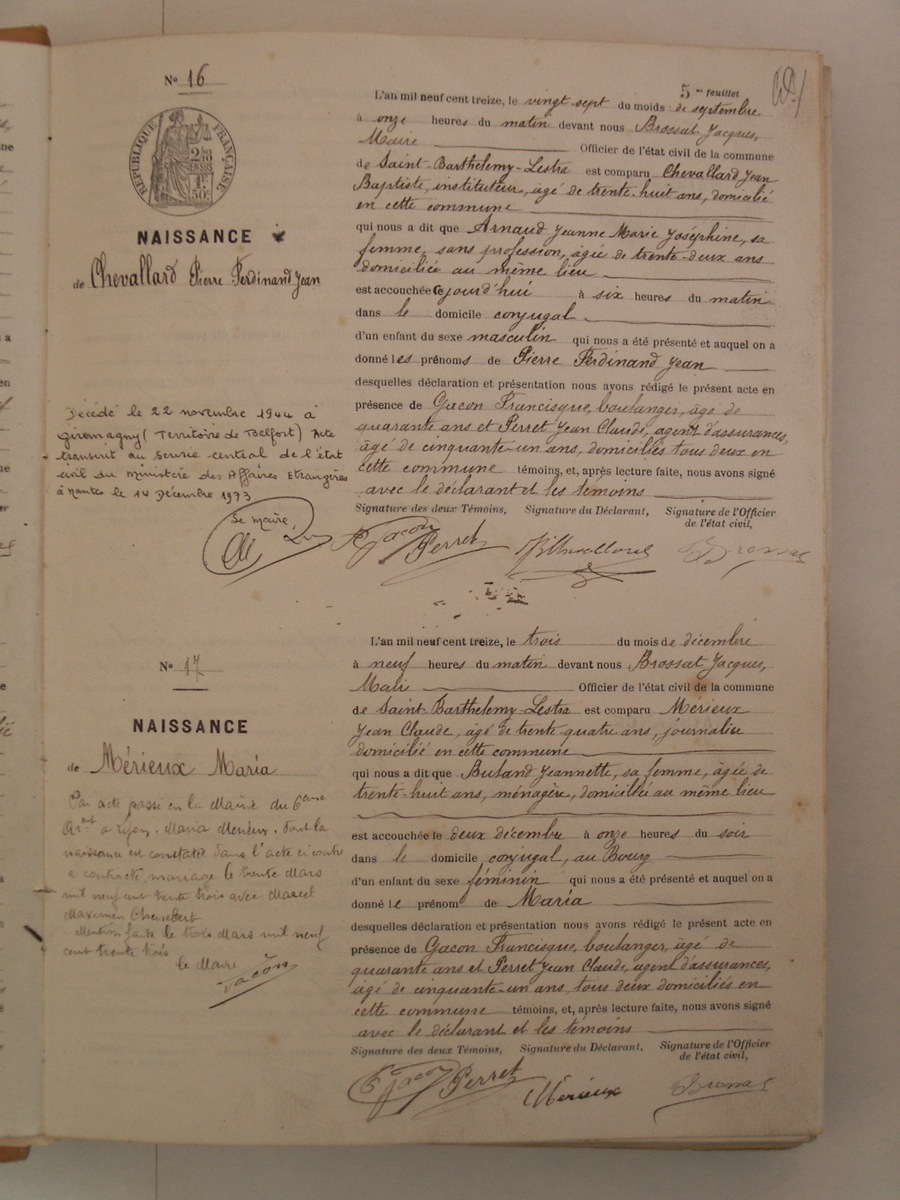 5me feuillet
Nº 16
RÉPUBLIQUE FRANÇAISE
NAISSANCE
de Chevallard Pierre Ferdinand Jean
Décédé le 22 novembre 1944 à
Giromagny (Territoire de Belfort) Acte
transmit au Service central de l'état
civil du Ministère des Affaires Etrangères
à Nantes le 14 Décembre 1973.
Le Maire,
L'an mil neuf cent treize, le vingt sept du moids : de septembre
à onze heures du matin devant nous Brossat Jacques,
Maire Officier de l'état civil de la commune
de Saint-Barthélemy-Lestra est comparu Chevallard Jean
Baptiste, instituteur, âgé de trente-huit ans, domicilié
en cette commune
qui nous a dit que Arnaud Jeanne Marie Joséphine, sa
femme, sans profession, âgée de trente-deux ans
domiciliée au même lieu
est accouchée Cejourd'hui à six heures du matin
dans le domicile conjugal
d'un enfant du sexe masculin qui nous a été présenté et auquel on a
donné les prénoms de Pierre Ferdinand Jean
desquelles déclaration et présentation nous avons rédigé le présent acte en
présence de Gacon Francisque, boulanger, âgé de
quarante ans et Perret Jean Claude, agent d'assurances,
âgé de cinquante-un ans, domiciliés tous deux en
cette commune témoins, et, après lecture faite, nous avons signé
avec le déclarant et les témoins
Signature des deux Témoins, Signature du Déclarant, Signature de l'Officier
de l'état civil,
Gacon Perret JB Chevallard Brossat
Nº 17
NAISSANCE
de Mérieux Maria
Par acte passé en la Mairie du 6eme
Arrt à Lyon. Maria Merieux. dont la
naissance est constatée dans l'acte ci contre
a contracté mariage le trente Mars
mil neuf cent trente trois avec Marcel
Maximin
Mention faite le trois Mars mil neuf
cent trente trois
le Maire
Gacon
L'an mil neuf cent treize, le trois du mois de décembre
à neuf heures du matin devant nous Brossat Jacques,
Maire Officier de l'état civil de la commune
de Saint-Barthélemy-Lestra est comparu Mérieux
Jean Claude, âgé de trente quatre ans, journalier
domicilié en cette commune
qui nous a dit que Buland Jeannette, sa femme, âgée de
trente-huit ans, ménagère, domiciliée au même lieu
est accouchée le deux décembre à onze heures du soir
dans le domicile conjugal, au Bourg
d'un enfant du sexe féminin qui nous a été présenté et auquel on a
donné le prénom de Maria
desquelles déclaration et présentation nous avons rédigé le présent acte en
présence de Gacon Francisque, boulanger, âgé de
quarante ans et Perret Jean Claude, agent d'assurances,
âgé de cinquante-un ans, tous deux domiciliés en
cette commune témoins, et, après lecture faite, nous avons signé
avec le déclarant et les témoins
Signature des deux Témoins, Signature du Déclarant, Signature de l'Officier
de l'état civil,
Gacon Perret Mérieux Brossat